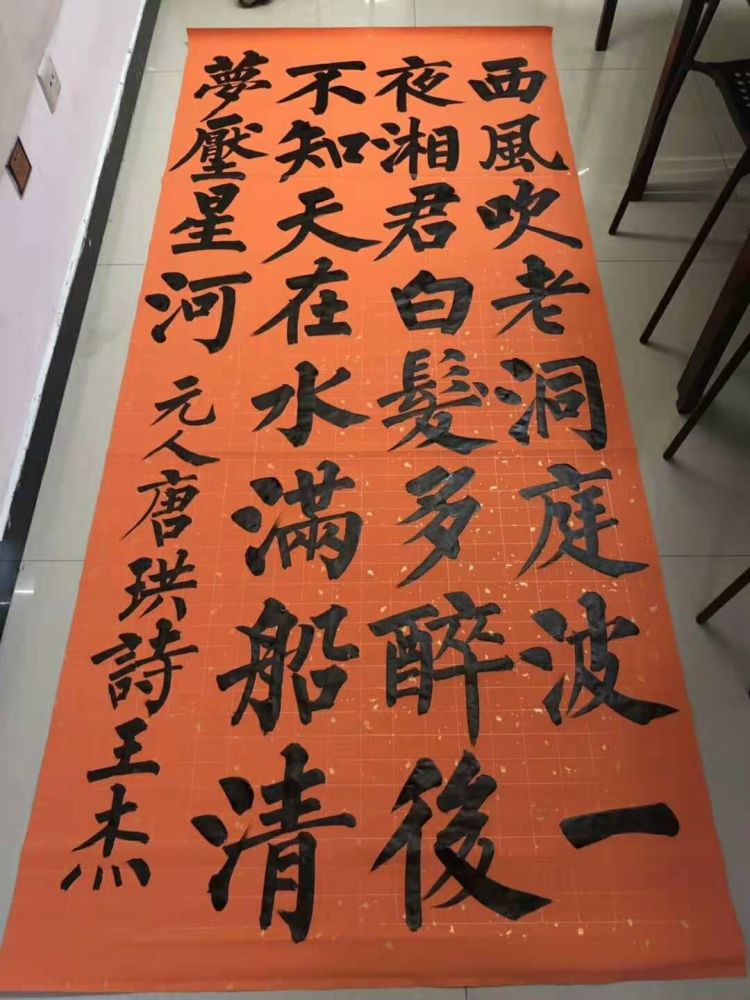 西風吹老洞庭波一
夜湘君白髮多醉後
不知天在水滿船清
夢壓星河
元人唐珙詩王杰